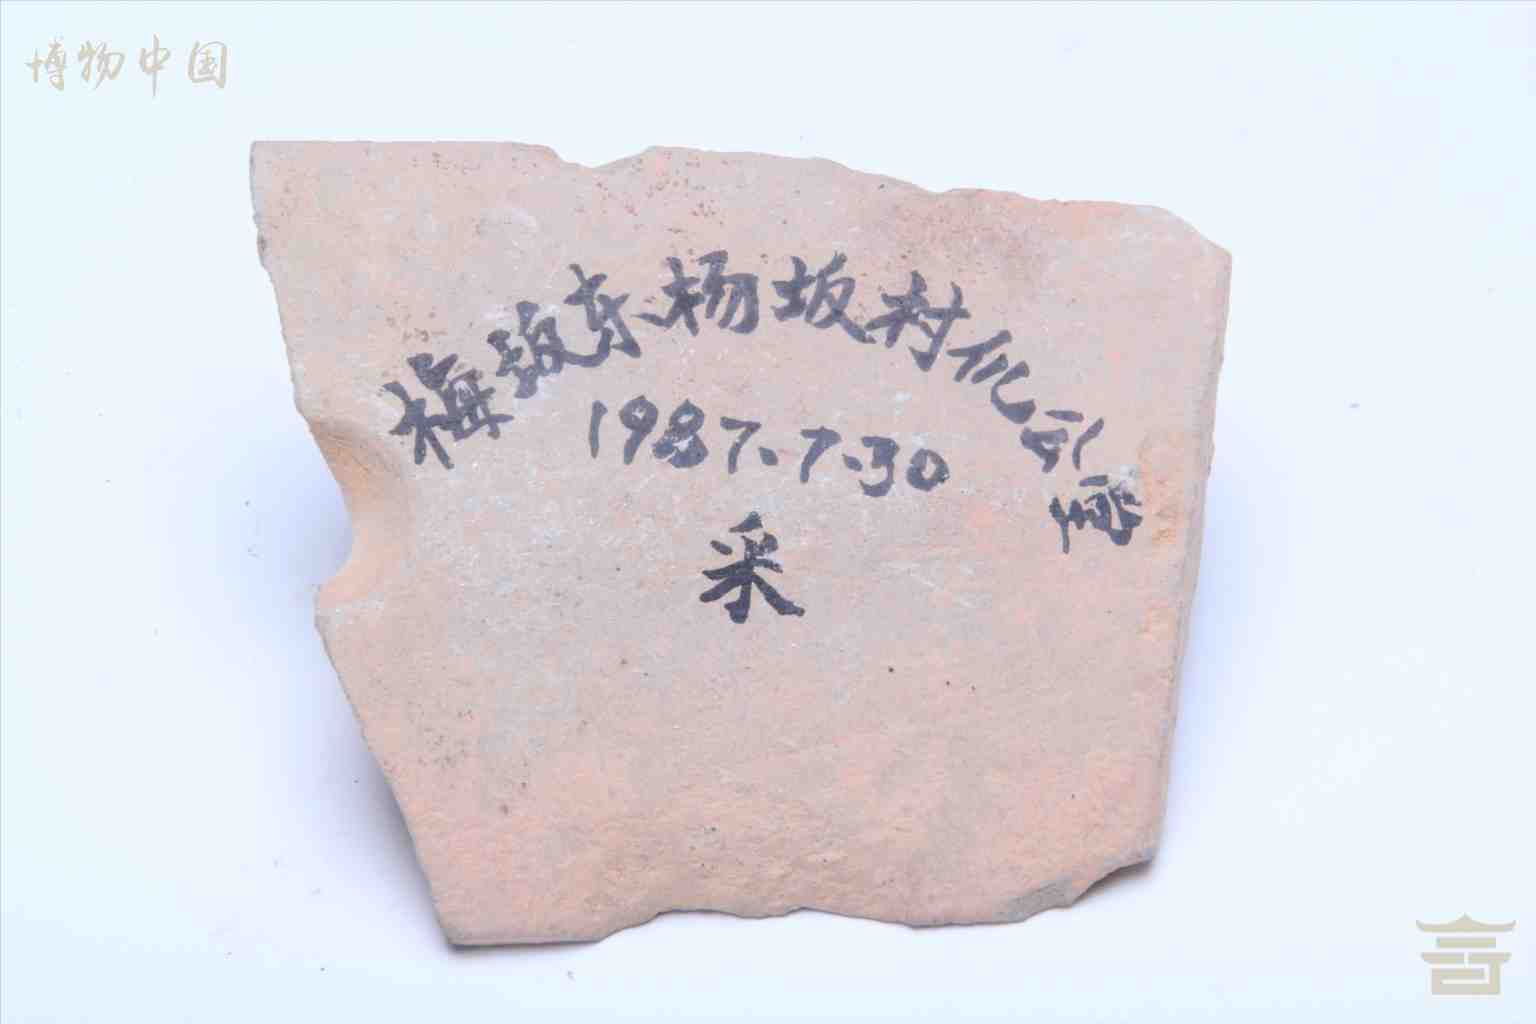 博物中国
梅坂东杨坂村化
1987.7.30
采